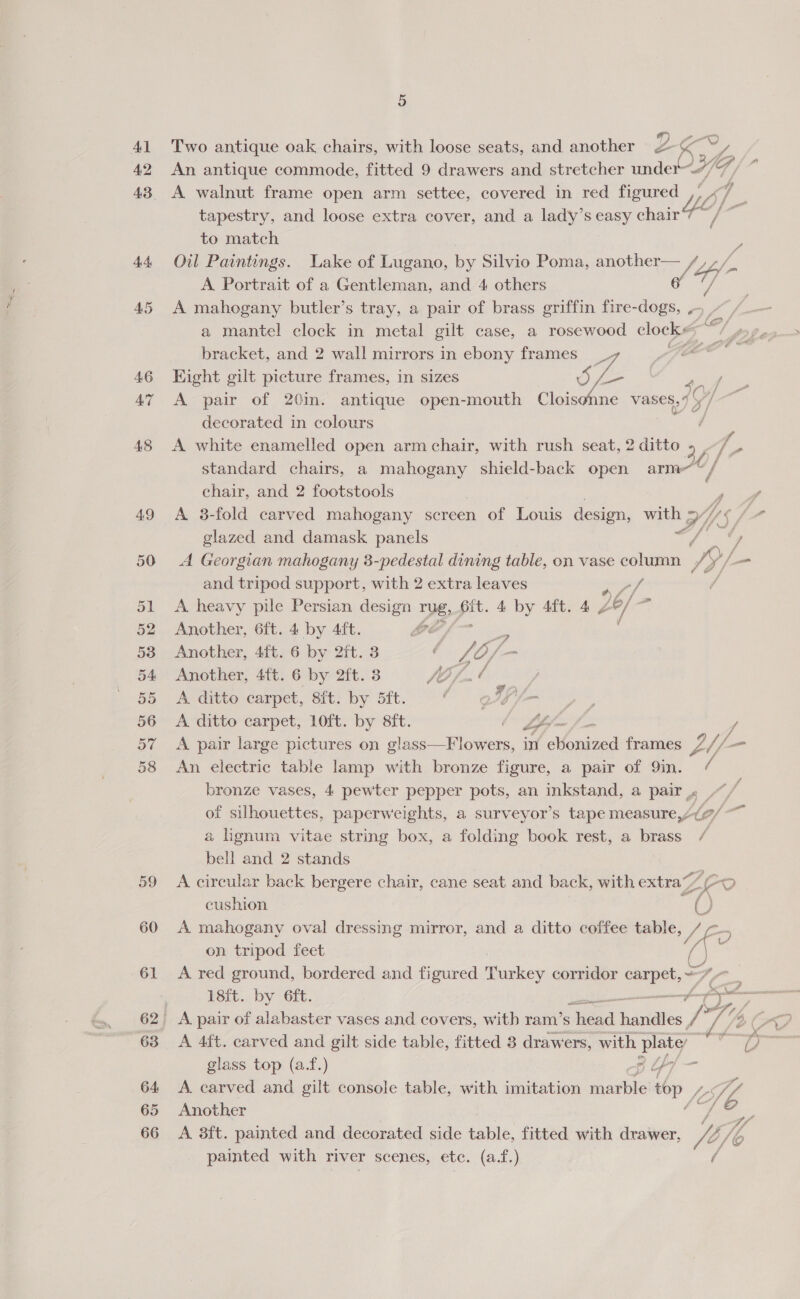 5
41 Two antique oak chairs, with loose seats, and another
42 An antique commode, fitted 9 drawers and stretcher under
43 A walnut frame open arm settee, covered in red figured
tapestry, and loose extra cover, and a lady's easy chair
to match
44 Oil Paintings. Lake of Lugano, by Silvio Poma, another—
A Portrait of a Gentleman, and 4 others 6
45 A mahogany butler's tray, a pair of brass griffin fire-dogs,
a mantel clock in metal gilt case, a rosewood clock
bracket, and 2 wall mirrors in ebony frames
46 Eight gilt picture frames, in sizes
47 A pair of 20in. antique open-mouth Cloisonne vases,
decorated in colours
48 A white enamelled open arm chair, with rush seat, 2 ditto
standard chairs, a mahogany shield-back open arm
chair, and 2 footstools
49 A 3-fold carved mahogany screen of Louis design, with
glazed and damask panels
50 A Georgian mahogany 3-pedestal dining table, on vase column
and tripod support, with 2 extra leaves
51 A heavy pile Persian design rug, 6ft. 4 by 4ft. 4
52 Another, 6ft. 4 by 4ft.
53 Another, 4ft. 6 by 2ft. 3
54 Another, 4ft. 6 by 2ft. 3
55 A ditto carpet, 8ft. by 5ft.
56 A ditto carpet, 10ft. by 8ft.
57 A pair large pictures on glass—Flowers, in ebonized frames
58 An electric table lamp with bronze figure, a pair of 9in.
bronze vases, 4 pewter pepper pots, an inkstand, a pair
of silhouettes, paperweights, a surveyor's tape measure,
a lignum vitae string box, a folding book rest, a brass
bell and 2 stands
59 A circular back bergere chair, cane seat and back, with extra
cushion
60 A mahogany oval dressing mirror, and a ditto coffee table,
on tripod feet
61 A red ground, bordered and figured Turkey corridor carpet,
18ft. by 6ft.
62 A pair of alabaster vases and covers, with ram's head handles
63 A 4ft. carved and gilt side table, fitted 3 drawers, with plate
glass top (a.f.)
64 A carved and gilt console table, with imitation marble top
65 Another
66 A 3ft. painted and decorated side table, fitted with drawer,
painted with river scenes, etc. (a.f.)